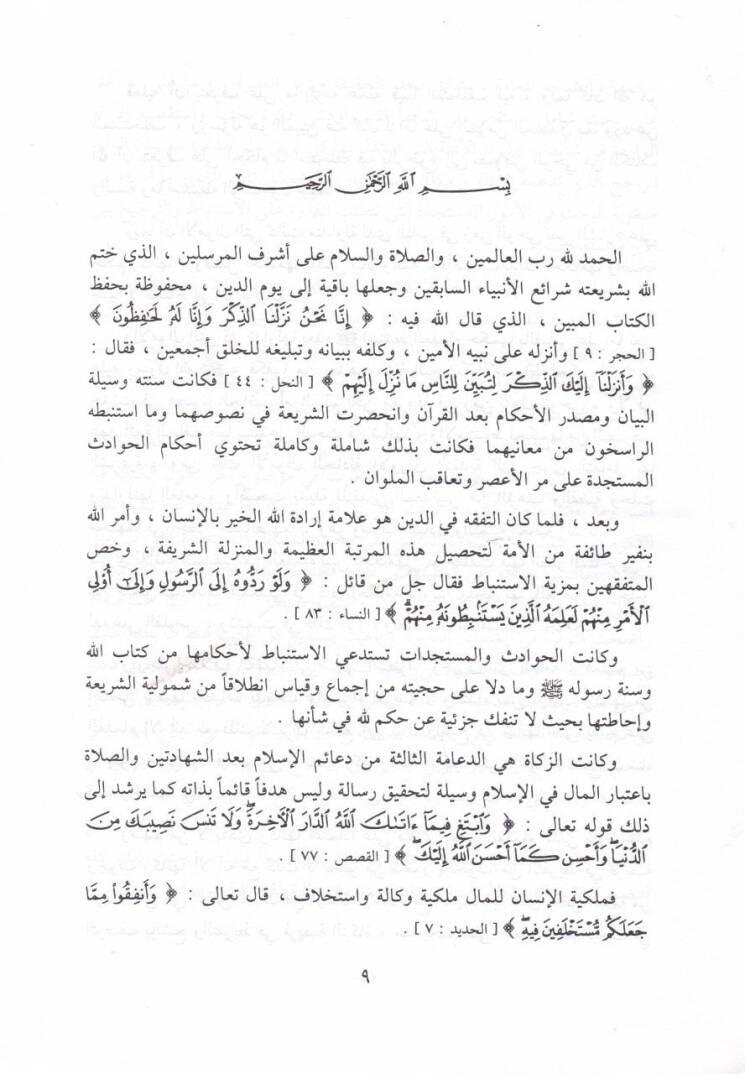 بِسْمِ اللَّهِ الرَّحْمَٰنِ الرَّحِيمِ
الحمد لله رب العالمين ، والصلاة والسلام على أشرف المرسلين ، الذي ختم
الله بشريعته شرائع الأنبياء السابقين وجعلها باقية إلى يوم الدين ، محفوظة بحفظ
الكتاب المبين ، الذي قال الله فيه : ﴿ إِنَّا نَحْنُ نَزَّلْنَا الذِّكْرَ وَإِنَّا لَهُ لَحَافِظُونَ ﴾
[ الحجر : ٩ ] وأنزله على نبيه الأمين ، وكلفه ببيانه وتبليغه للخلق أجمعين ، فقال :
﴿ وَأَنزَلْنَا إِلَيْكَ الذِّكْرَ لِتُبَيِّنَ لِلنَّاسِ مَا نُزِّلَ إِلَيْهِمْ ﴾ [ النحل : ٤٤ ] فكانت سنته وسيلة
البيان ومصدر الأحكام بعد القرآن وانحصرت الشريعة في نصوصهما وما استنبطه
الراسخون من معانيهما فكانت بذلك شاملة وكاملة تحتوي أحكام الحوادث
المستجدة على مر الأعصر وتعاقب الملوان .
وبعد ، فلما كان التفقه في الدين هو علامة إرادة الله الخير بالإنسان ، وأمر الله
بنفير طائفة من الأمة لتحصيل هذه المرتبة العظيمة والمنزلة الشريفة ، وخص
المتفقهين بمزية الاستنباط فقال جل من قائل : ﴿ وَلَوْ رَدُّوهُ إِلَى الرَّسُولِ وَإِلَىٰ أُوْلِى
الْأَمْرِ مِنْهُمْ لَعَلِمَهُ الَّذِينَ يَسْتَنۢبِطُونَهُ مِنْهُمْ ﴾ [ النساء : ٨٣ ] .
وكانت الحوادث والمستجدات تستدعي الاستنباط لأحكامها من كتاب الله
وسنة رسوله ﷺ وما دلا على حجيته من إجماع وقياس انطلاقاً من شمولية الشريعة
وإحاطتها بحيث لا تنفك جزئية عن حكم لله في شأنها .
وكانت الزكاة هي الدعامة الثالثة من دعائم الإسلام بعد الشهادتين والصلاة
باعتبار المال في الإسلام وسيلة لتحقيق رسالة وليس هدفاً قائماً بذاته كما يرشد إلى
ذلك قوله تعالى : ﴿ وَابْتَغِ فِيمَا ءَاتَىٰكَ اللَّهُ الدَّارَ الْآخِرَةَ وَلَا تَنسَ نَصِيبَكَ مِنَ
الدُّنْيَا وَأَحْسِن كَمَا أَحْسَنَ اللَّهُ إِلَيْكَ ﴾ [ القصص : ٧٧ ] .
فملكية الإنسان للمال ملكية وكالة واستخلاف ، قال تعالى : ﴿ وَأَنفِقُوا مِمَّا
جَعَلَكُم مُّسْتَخْلَفِينَ فِيهِ ﴾ [ الحديد : ٧ ] .
٩